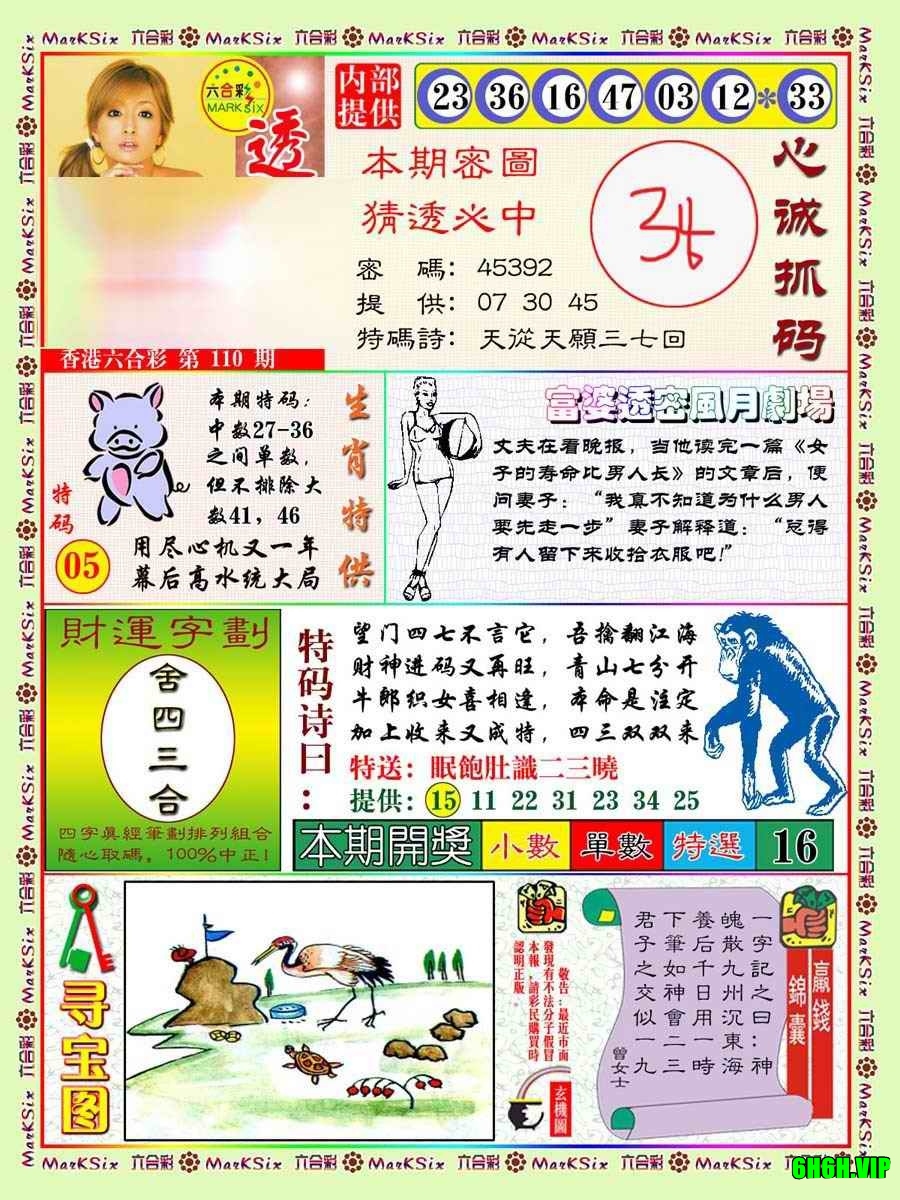 MarKSix 六合彩 MarKSix 六合彩 MarKSix 六合彩 MarKSix 六合彩 MarKSix 六合彩
六合彩
MARK SIX
透
内部
提供
23 36 16 47 03 12 * 33
本期密圖
猜透必中
密 碼: 45392
提 供: 07 30 45
特碼詩: 天從天願三七回
心誠抓码
香港六合彩 第 110 期
本期特码:
中数27-36
之间单数,
但不排除大
数41, 46
用尽心机又一年
幕后高水统大局
特码
05
生肖特供
富婆透密風月劇場
丈夫在看晚报, 当他读完一篇《女
子的寿命比男人长》的文章后, 便
问妻子: “我真不知道为什么男人
要先走一步” 妻子解释道: “总得
有人留下来收拾衣服吧!”
財運字劃
舍四三合
四字眞經筆劃排列組合
隨心取碼, 100%中正!
特码诗曰:
望门四七不言它, 吾擒翻江海
财神进码又再旺, 青山七分开
牛郎织女喜相逢, 本命是注定
加上收来又成特, 四三双双来
特送: 眠飽肚識二三曉
提供: 15 11 22 31 23 34 25
本期開獎 小數 單數 特選 16
寻宝图
敬告:最近市面
發現有不法分子假冒
本報,請彩民購買時
認明正版。
玄機圖
一字記之曰:神
魄散九州沉東海
養后千日用一時
下筆如神會二三
君子之交似一九
曾女士
贏錢
錦囊
MarKSix 六合彩 MarKSix 六合彩 MarKSix 六合彩 MarKSix 六合彩 MarKSix
6H6H.VIP